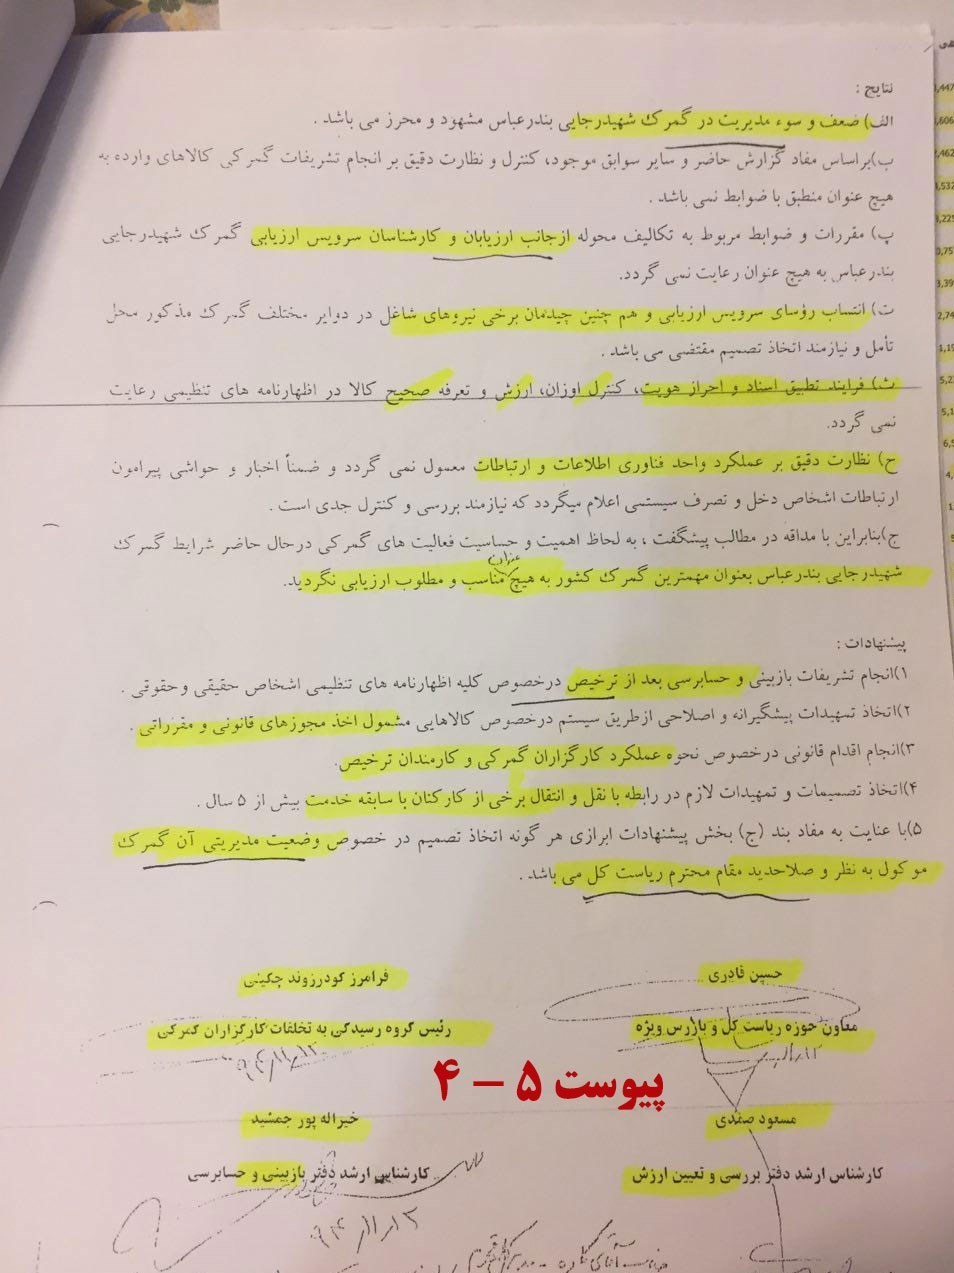 نتایج :
الف) ضعف و سوء مدیریت در گمرک شهیدرجایی بندرعباس مشهود و محرز می باشد .
ب)براساس مفاد گزارش حاضر و سایر سوابق موجود، کنترل و نظارت دقیق بر انجام تشریفات گمرکی کالاهای وارده به
هیچ عنوان منطبق با ضوابط نمی باشد .
پ) مقررات و ضوابط مربوط به تکالیف محوله ازجانب ارزیابان و کارشناسان سرویس ارزیابی گمرک شهیدرجایی
بندرعباس به هیچ عنوان رعایت نمی گردد.
ت) انتساب رؤسای سرویس ارزیابی و هم چنین چیدمان برخی نیروهای شاغل در دوایر مختلف گمرک مذکور محل
تأمل و نیازمند اتخاذ تصمیم مقتضی می باشد .
ث) فرایند تطبیق اسناد و احراز هویت، کنترل اوزان، ارزش و تعرفه صحیح کالا در اظهارنامه های تنظیمی رعایت
نمی گردد.
ح) نظارت دقیق بر عملکرد واحد فناوری اطلاعات و ارتباطات معمول نمی گردد و ضمناً اخبار و حواشی پیرامون
ارتباطات اشخاص دخل و تصرف سیستمی اعلام میگردد که نیازمند بررسی و کنترل جدی است .
ج)بنابراین با مداقه در مطالب پیشگفت ، به لحاظ اهمیت و حساسیت فعالیت های گمرکی درحال حاضر شرایط گمرک
شهیدرجایی بندرعباس بعنوان مهمترین گمرک کشور به هیچ عنوان مناسب و مطلوب ارزیابی نگردید.
پیشنهادات :
۱)انجام تشریفات بازبینی و حسابرسی بعد از ترخیص درخصوص کلیه اظهارنامه های تنظیمی اشخاص حقیقی وحقوقی .
۲)اتخاذ تمهیدات پیشگیرانه و اصلاحی ازطریق سیستم درخصوص کالاهایی مشمول اخذ مجوزهای قانونی و مقرراتی .
۳)انجام اقدام قانونی درخصوص نحوه عملکرد کارگزاران گمرکی و کارمندان ترخیص.
۴)اتخاذ تصمیمات و تمهیدات لازم در رابطه با نقل و انتقال برخی از کارکنان با سابقه خدمت بیش از ۵ سال .
۵)با عنایت به مفاد بند (ج) بخش پیشنهادات ابرازی هر گونه اتخاذ تصمیم در خصوص وضعیت مدیریتی آن گمرک
موکول به نظر و صلاحدید مقام محترم ریاست کل می باشد .
حسین قادری
فرامرز گودرزوند چگینی
معاون حوزه ریاست کل و بازرس ویژه
رئیس گروه رسیدگی به تخلفات کارگزاران گمرکی
۹۴/۱۱/۱۲
پیوست ۵ – ۴
مسعود صمدی
خیراله پور جمشید
کارشناس ارشد دفتر بررسی و تعیین ارزش
کارشناس ارشد دفتر بازبینی و حسابرسی
۹۴/۱۱/۱۲